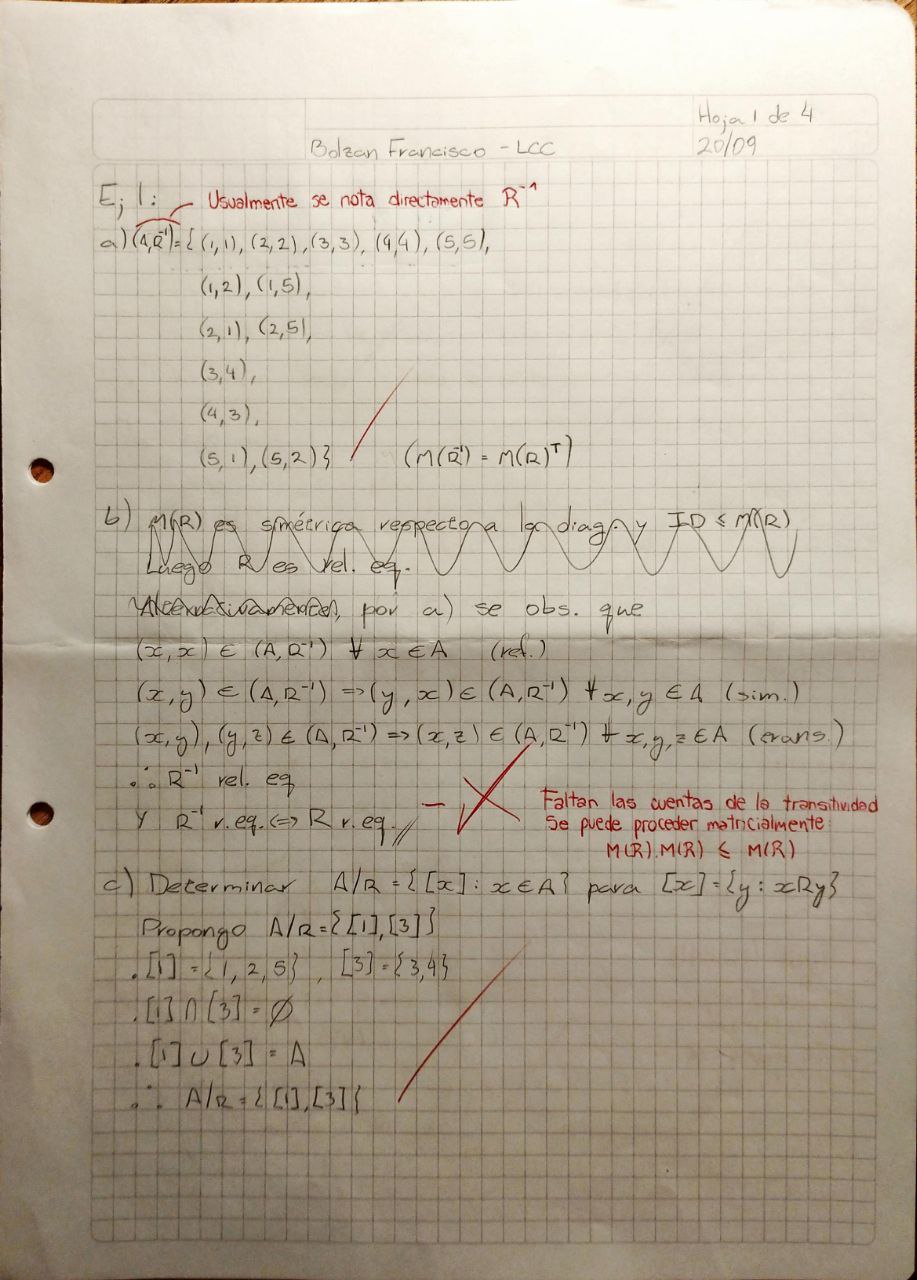 Hoja 1 de 4
Bolzan Francisco - LCC
20/09
Ej 1:
Usualmente se nota directamente R⁻¹
a) (A,R⁻¹)={ (1,1), (2,2), (3,3), (4,4), (5,5),
(1,2), (1,5),
(2,1), (2,5),
(3,4),
(4,3),
(5,1), (5,2)}
(M(R⁻¹) = M(R)ᵀ)
b) M(R) es simétrica respecto a la diag y ID ≤ M(R)
Luego R es rel. eq.
por a) se obs. que
(x,x) ∈ (A,R⁻¹) ∀ x ∈ A (ref.)
(x,y) ∈ (A,R⁻¹) => (y,x) ∈ (A,R⁻¹) ∀ x,y ∈ A (sim.)
(x,y), (y,z) ∈ (A,R⁻¹) => (x,z) ∈ (A,R⁻¹) ∀ x,y,z ∈ A (trans.)
∴ R⁻¹ rel. eq
Y R⁻¹ r.eq. <=> R r.eq. //
Faltan las cuentas de la transitividad
Se puede proceder matricialmente:
M(R).M(R) ≤ M(R)
c) Determinar A/R = {[x] : x ∈ A} para [x] = {y : xRy}
Propongo A/R = {[1],[3]}
. [1] = {1,2,5}, [3] = {3,4}
. [1] ∩ [3] = ∅
. [1] ∪ [3] = A
∴ A/R = {[1],[3]}